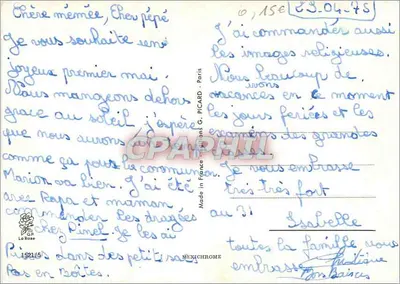 Chère mémée, Cher pépé
Je vous souhaite un
joyeux premier mai.
Nous mangeons dehors
grace au soleil. j'espère
que nous aurons
comme ça pour la communion
Marion va bien. J'ai été
avec Papa et maman
commander les dragées
chez Pinel. Je les ai
prises dans des petits sacs
pas en boîtes.
La Rose
1521/5
MEXICHROME
Made in France
G. PICARD - Paris
CPARHIL
0,15€
29-04-75
J'ai commander aussi
les images religieuses.
Nous avons beaucoup de
vacances en ce moment
les jours feriés et les
examens des grandes
Je vous embrasse
très très fort
au 31
Isabelle
toutes la famille vous
embrasse